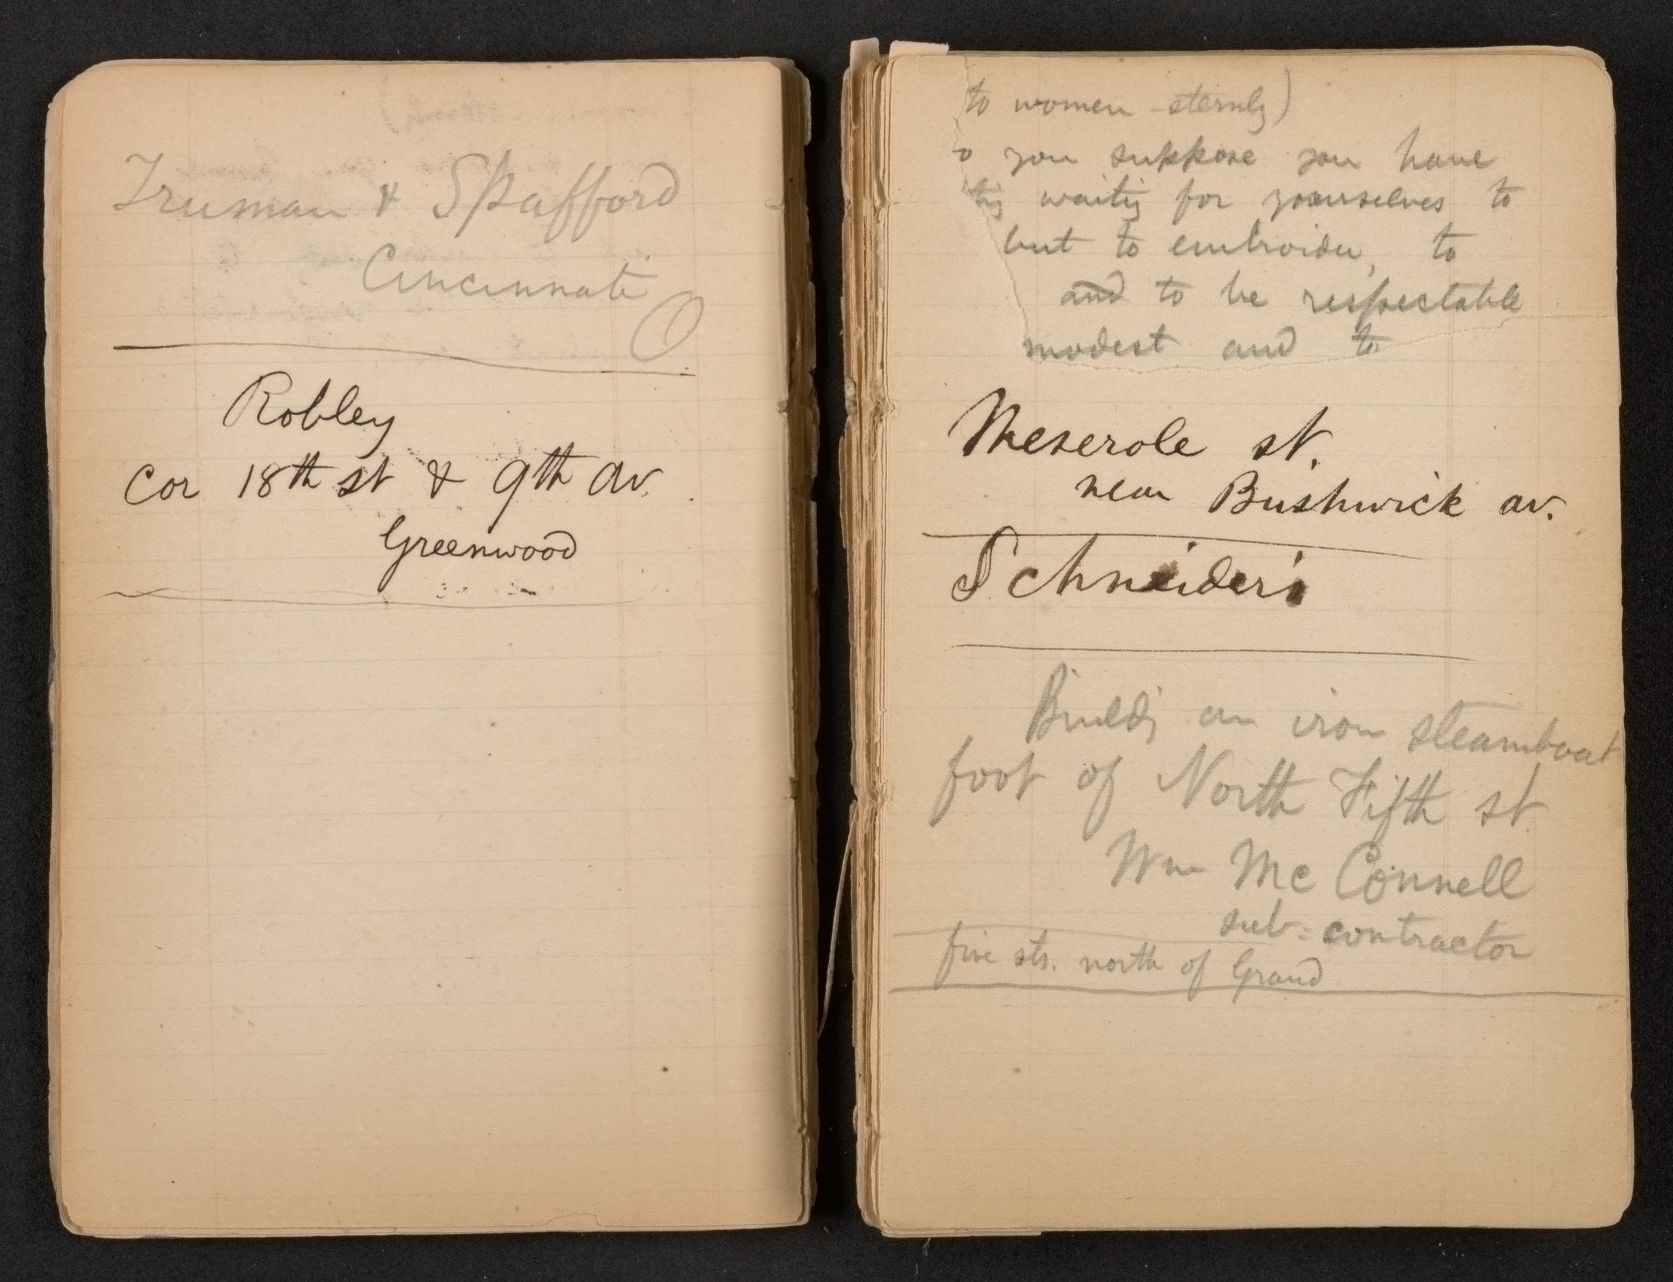 Truman & Spafford
Cincinnati
O
Robley
cor 18th st & 9th av.
Greenwood
(to women sternly)
o you suppose you have
waiting for yourselves to
but to embroider, to
and to be respectable
modest and to
Meserole st.
near Bushwick av.
Schneider's
Buildg an iron steamboat
foot of North Fifth st.
Wm McConnell
sub=contractor
five sts. north of Grand